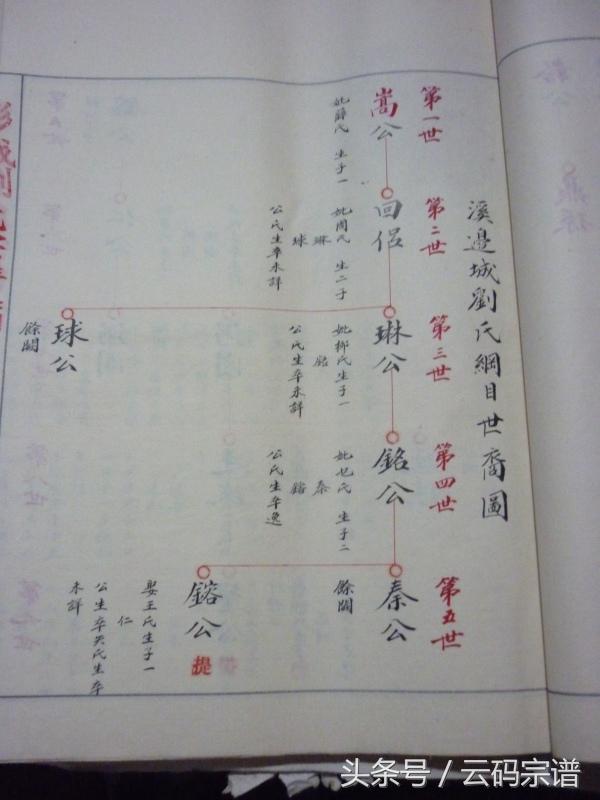 溪邊城劉氏綱目世裔圖
第一世
嵩公
妣薛氏 生子一
第二世
回侶
妣周氏 生二子
琳
球
公氏生卒未詳
第三世
琳公
妣柳氏生子一
銘
公氏生卒未詳
球公
餘闕
第四世
銘公
氏 生子二
秦
鎔
公氏生卒逸
第五世
秦公
餘闕
鎔公
提
娶王氏生子一
仁
公生卒失氏生卒
未詳
头条号／云码宗谱